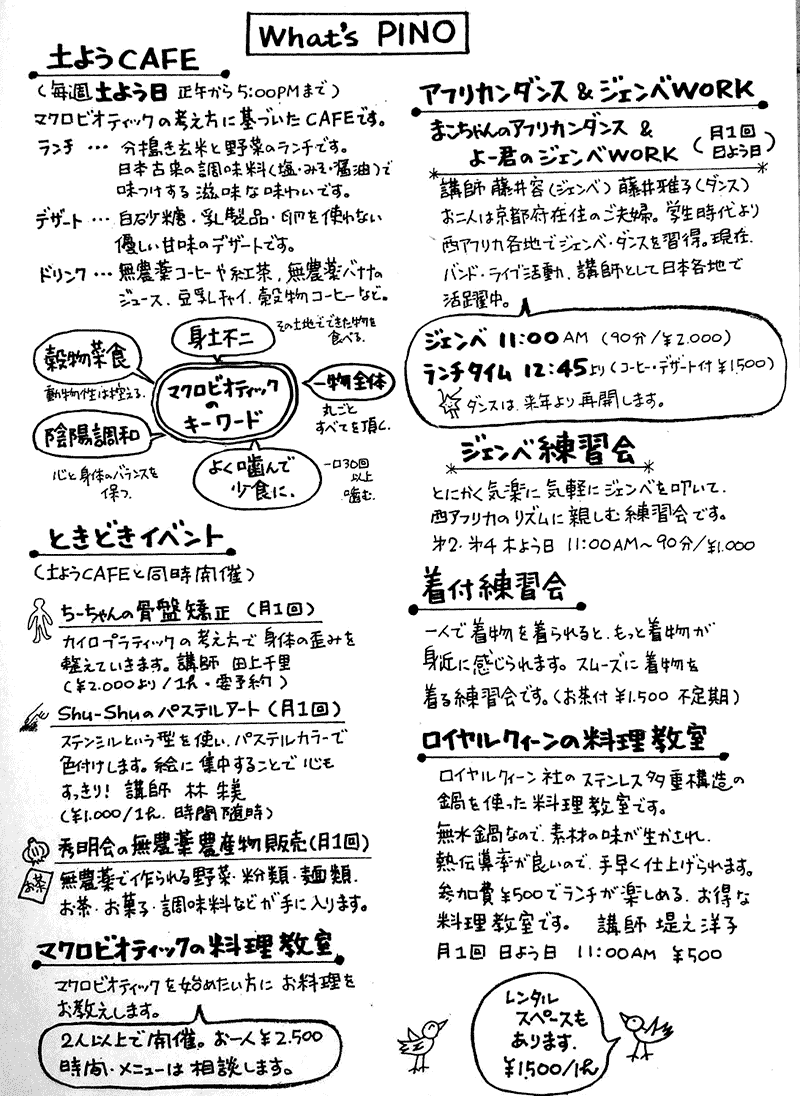 What's PINO
土ようCAFE
(毎週土よう日 正午から5:00PMまで)
マクロビオティックの考え方に基づいたCAFEです。
ランチ … 分搗き玄米と野菜のランチです。
日本古来の調味料(塩・みそ・醤油)で
味つけする滋味な味わいです。
デザート … 白砂糖・乳製品・卵を使わない
優しい甘味のデザートです。
ドリンク … 無農薬コーヒーや紅茶、無農薬バナナの
ジュース、豆乳チャイ、穀物コーヒーなど。
身土不二
その土地でできた物を
食べる。
穀物菜食
動物性は控える。
マクロビオティック
の
キーワード
一物全体
丸ごと
すべてを頂く。
陰陽調和
心と身体のバランスを
保つ。
よく噛んで
少食に。
一口30回
以上
噛む。
ときどきイベント
(土ようCAFEと同時開催)
ちーちゃんの骨盤矯正 (月1回)
カイロプラティックの考え方で身体の歪みを
整えていきます。講師 田上千里
(¥2.000より/1h・要予約)
Shu-Shuのパステルアート(月1回)
ステンシルという型を使い、パステルカラーで
色付けします。絵に集中することで心も
すっきり! 講師 林 朱美
(¥1.000/1h. 時間随時)
秀明会の無農薬農産物販売(月1回)
お茶
無農薬で作られる野菜・粉類・麺類・
お茶・お菓子・調味料などが手に入ります。
マクロビオティックの料理教室
マクロビオティックを始めたい方にお料理を
お教えします。
2人以上で開催。お一人¥2.500
時間・メニューは相談します。
アフリカンダンス&ジェンベWORK
まこちゃんのアフリカンダンス &
よー君のジェンベWORK
(月1回
日よう日)
講師 藤井容(ジェンベ) 藤井雅子(ダンス)
お二人は京都府在住のご夫婦。学生時代より
西アフリカ各地でジェンベ・ダンスを習得。現在、
バンド・ライブ活動、講師として日本各地で
活躍中。
ジェンベ 11:00AM (90分/¥2.000)
ランチタイム 12:45より(コーヒー・デザート付¥1,500)
ダンスは、来年より再開します。
ジェンベ練習会
とにかく気楽に気軽にジェンベを叩いて、
西アフリカのリズムに親しむ練習会です。
第2・第4木よう日 11:00AM~90分/¥1.000
着付練習会
一人で着物を着られると、もっと着物が
身近に感じられます。スムーズに着物を
着る練習会です。(お茶付¥1.500 不定期)
ロイヤルクィーンの料理教室
ロイヤルクィーン社のステンレス多重構造の
鍋を使った料理教室です。
無水鍋なので、素材の味が生かされ、
熱伝導率が良いので、手早く仕上げられます。
参加費¥500でランチが楽しめる、お得な
料理教室です。 講師 堤之洋子
月1回 日よう日 11:00AM ¥500
レンタル
スペースも
あります。
¥1,500/1h